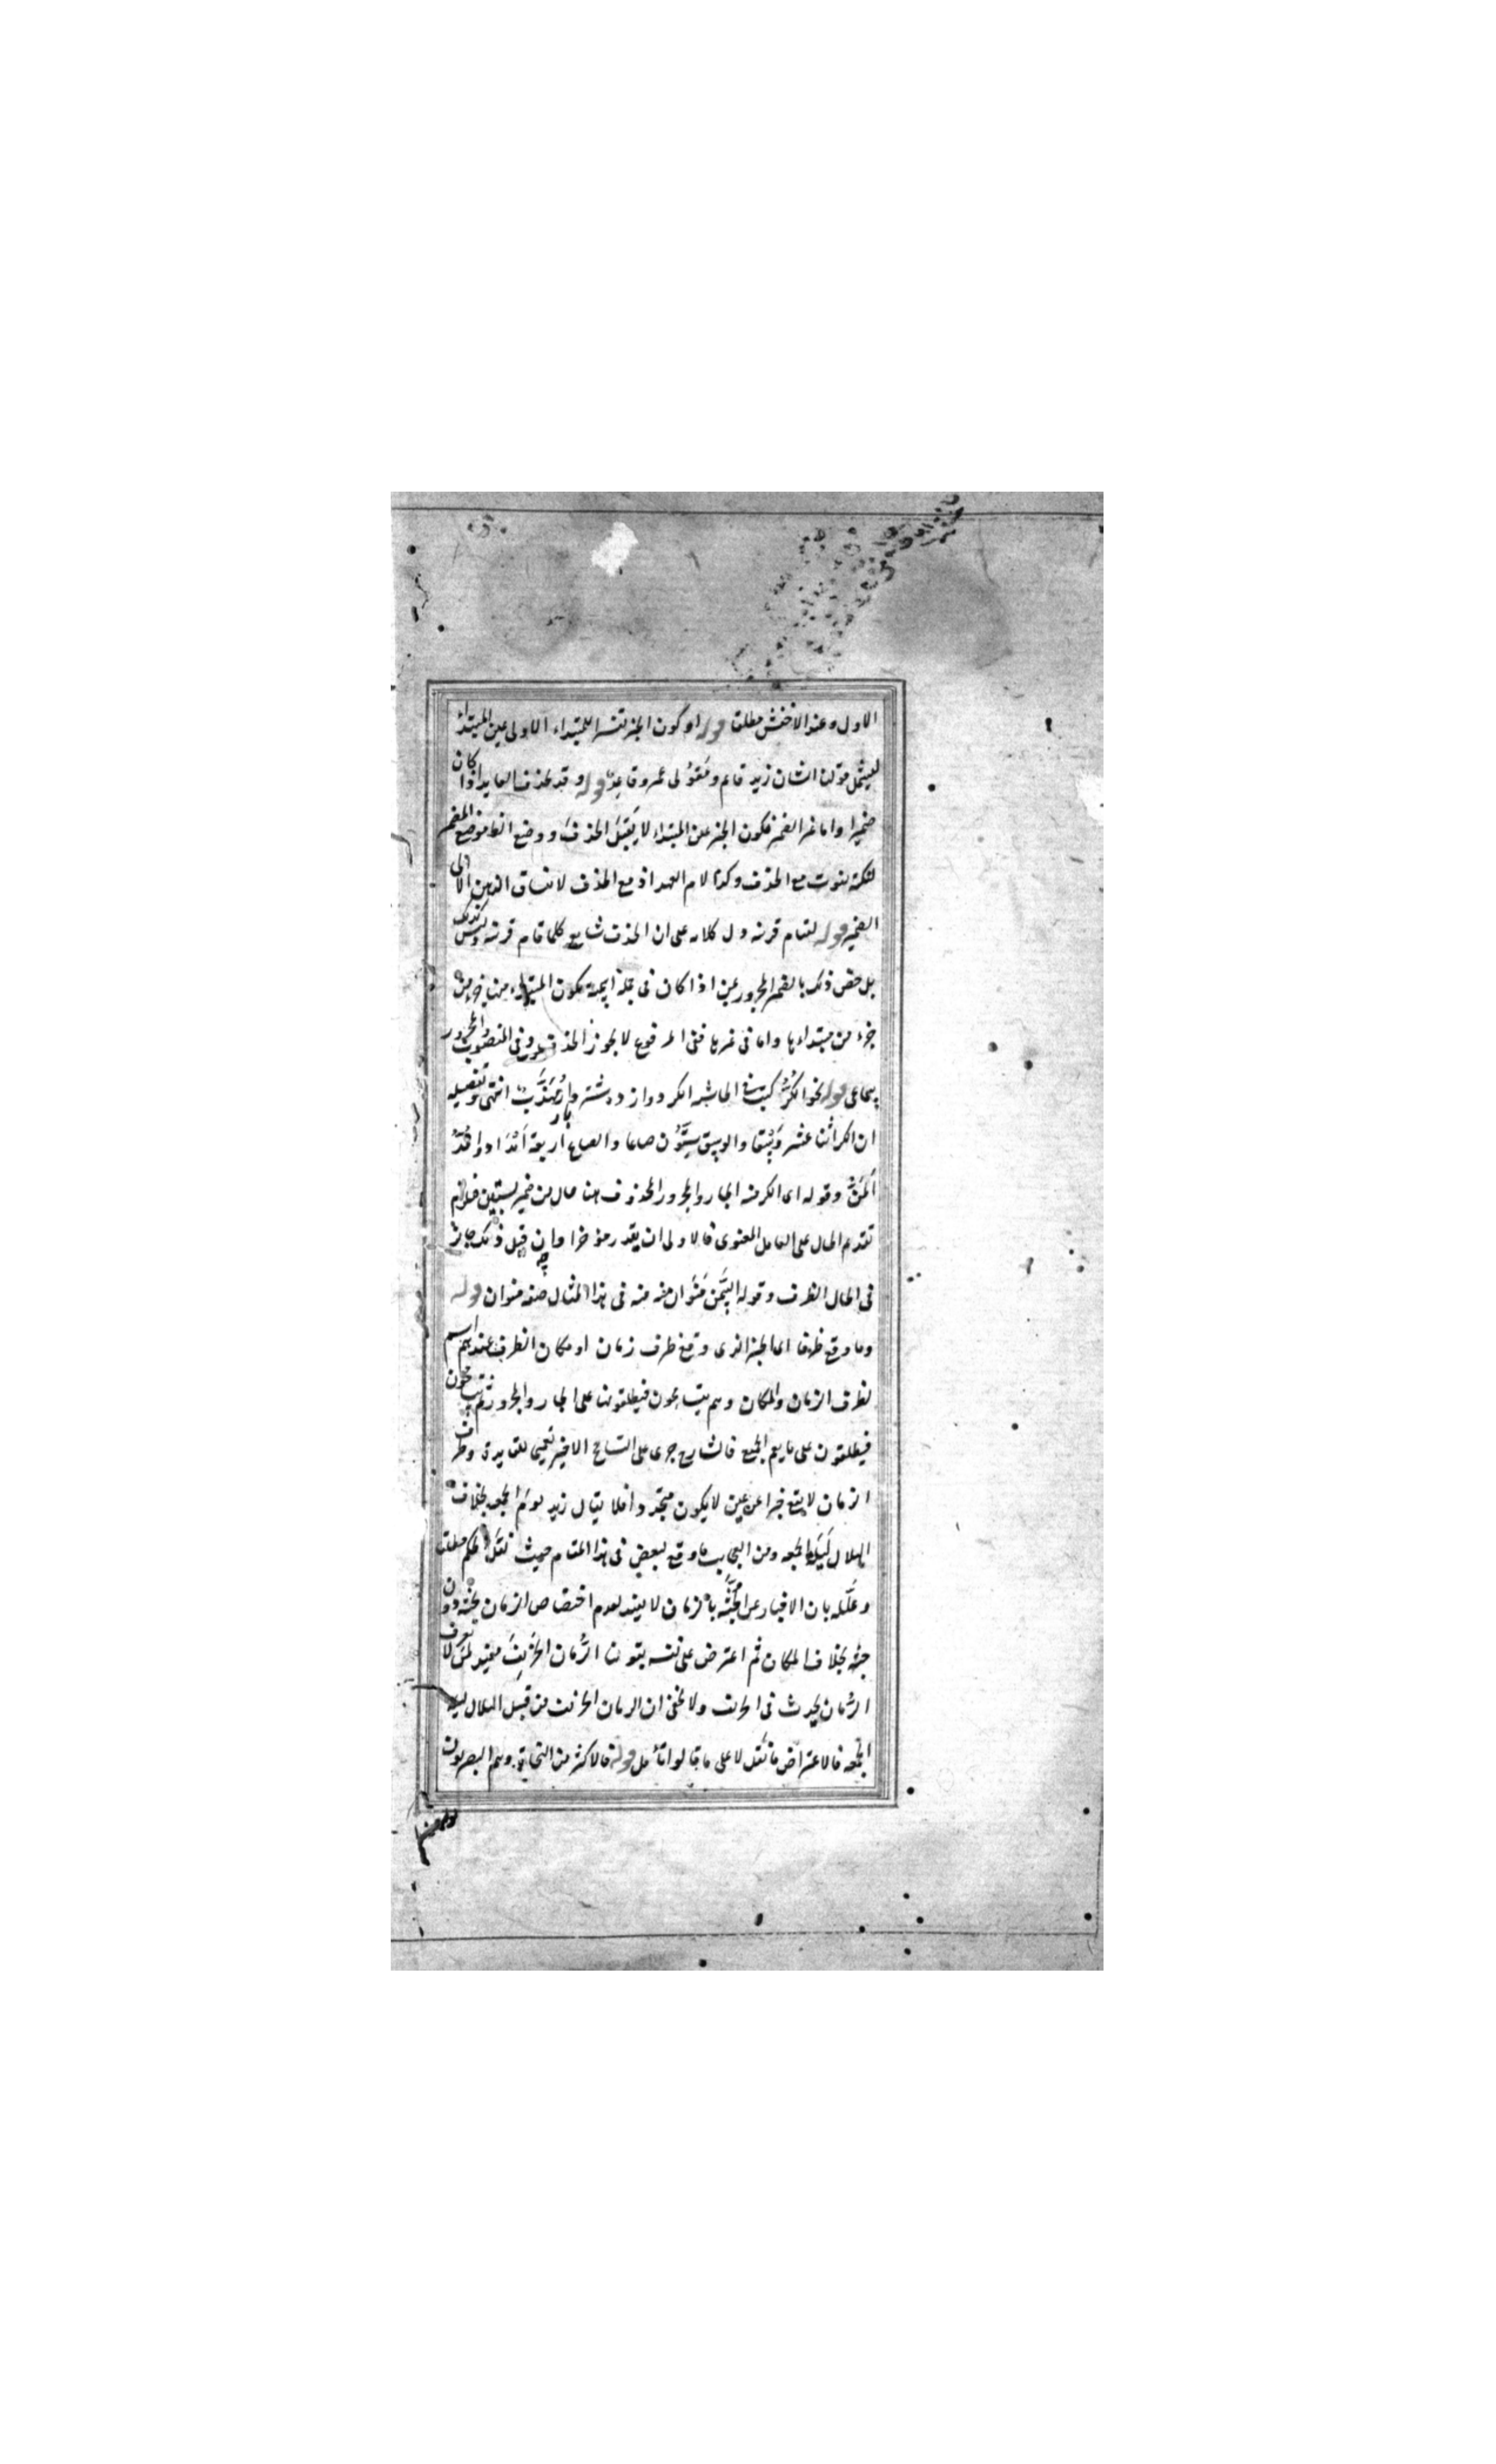 الاول وعند الاخفش مطلقا قوله او كون الخبر تفسيرا للمبتداء الاولى عين المبتداء
ليشمل قولنا الشان زيد قائم ومقولى عمرو قاعد قوله وقد يحذف العايد اذا كان
ضميرا واما غير الضمير فكون الخبر عين المبتداء لا يقبل الحذف ووضع الظاهر موضع المضمر
لنكتة يفوت مع الحذف وكذا لام العهد اذ مع الحذف لا ينساق الذهن الا الى
الضمير قوله لقيام قرينة دل كلامه على ان الحذف شايع كلما قام قرينة وليس كذلك
بل خص ذلك بالضمير المجرور بمن اذا كان فى جملة اسمية يكون المبتداء من خبره
جزء من مبتداءها واما فى غيرها ففى المرفوع لا يجوز الحذف وفى المنصوب والمجرور
سماعى قوله نحو الكر كتب فى الحاشية الكر دوازده شتر وار مهذب انتهى وتفصيله
ان الكر اثنا عشر وسقا والوسق ستون صاعا والصاع اربعة امداد والمد
المن وقوله اى الكر منه الجار والمجرور المحذوف هنا حال من ضمير بستين فلزم
تقدم الحال على العامل المعنوى فالاولى ان يقدر مؤخرا وان قيل ذلك جايز
فى الحال الظرف وقوله السمن منوان منه منه فى هذا المثال صفة منوان قوله
وما وقع ظرفا اى الخبر الذى وقع ظرف زمان او مكان الظرف عندهم اسم
لظرف الزمان والمكان وهم يتسامحون فيطلقونه على الجار والمجرور ثم يتسامحون
فيطلقون على ما يعم الجميع فالشارح جرى على التسامح الاخير تحمى للفايدة وظرف
الزمان لا يقع خبرا عن عين لا يكون متجددا فلا يقال زيد يوم الجمعة بخلاف
الهلال ليلة الجمعه ومن العجايب ما وقع لبعض فى هذا المقام حيث نقل الحكم مطلقا
وعلله بان الاخبار عن الجثه بالزمان لا يفيد لعدم اختصاص الزمان بجثه دون
جثه بخلاف المكان ثم اعترض على نفسه بقولنا الرمان الخريف مفيد لمن لا يعرف
الرمان يحدث فى الخريف ولا يخفى ان الرمان الخريف من قبيل الهلال ليلة
الجمعه فالاعتراض ما نقل لا على ما قالوا تأمل قوله فالاكثر من النحاة وهم البصريون